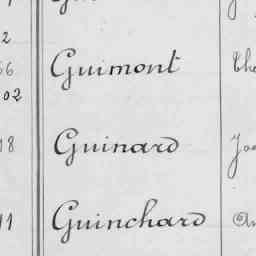 2
66 Guimont
02
18 Guinard
11 Guinchard